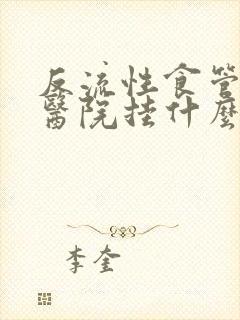 反流性食管
醫院挂什麼
李奎